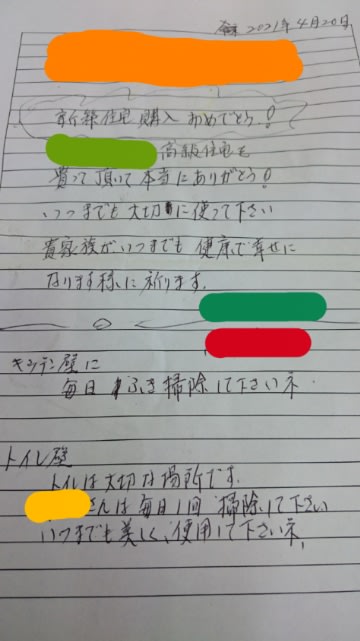 2021年4月20日
新築住宅購入おめでとう!
高級住宅を
買って頂いて本当にありがとう!
いつまでも大切に使って下さい
貴家族がいつまでも健康で幸せに
なります様に祈ります。
キッチン壁に
毎日ふき掃除して下さいネ.
トイレ壁
トイレは大切な場所です.
さんは毎日1回掃除して下さい
いつまでも美しく、使用して下さいネ.